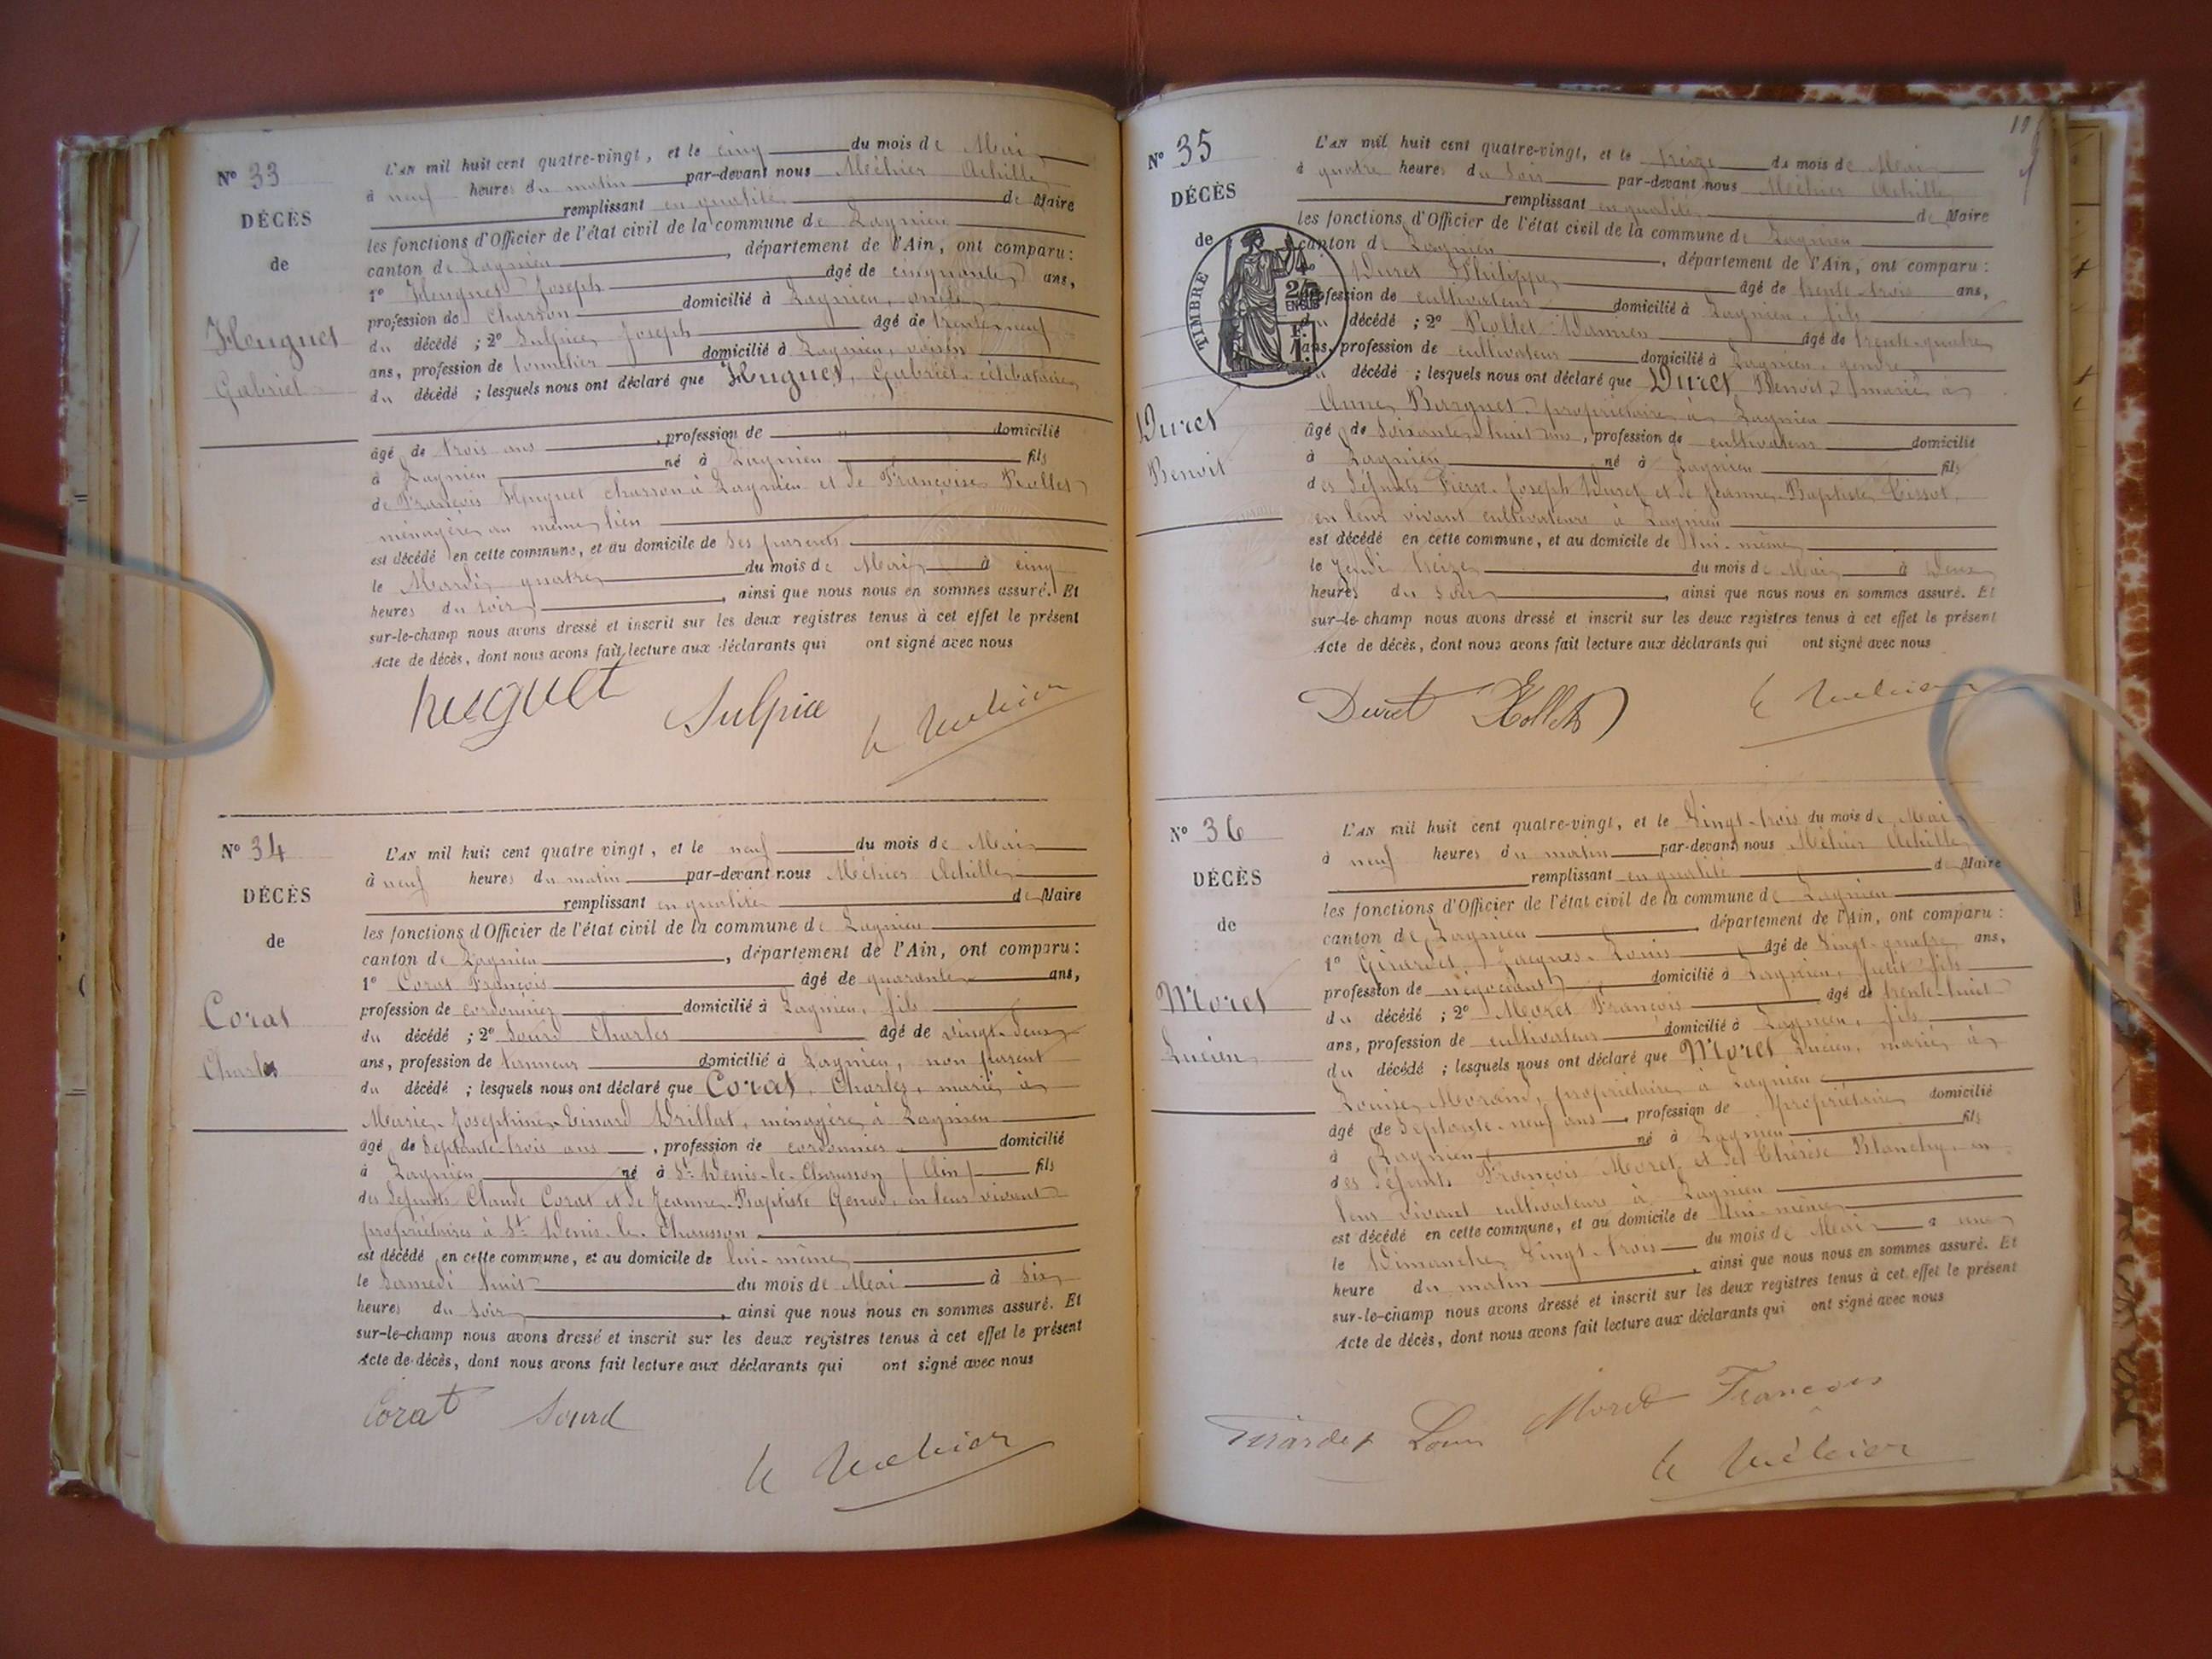 N° 33
DÉCÈS
de
Huguet
Gabriel
L'AN mil huit cent quatre-vingt, et le cinq du mois de Mai
à neuf heures du matin par-devant nous Méhier Achille
remplissant en qualité de Maire
les fonctions d'Officier de l'état civil de la commune de Lagnieu
canton de Lagnieu, département de l'Ain, ont comparu :
1° Huguet Joseph âgé de cinquante ans,
profession de Charron domicilié à Lagnieu, oncle
du décédé ; 2° Sulpice Joseph âgé de trente-neuf
ans, profession de tonnelier domicilié à Lagnieu, voisin
du décédé ; lesquels nous ont déclaré que Huguet, Gabriel, célibataire
âgé de trois ans, profession de " domicilié
à Lagnieu né à Lagnieu fils
de François Huguet charron à Lagnieu et de Françoise Rollet
ménagère au même lieu
est décédé en cette commune, et au domicile de ses parents
le Mardi quatre du mois de Mai à cinq
heures du soir, ainsi que nous nous en sommes assuré. Et
sur-le-champ nous avons dressé et inscrit sur les deux registres tenus à cet effet le présent
Acte de décès, dont nous avons fait lecture aux déclarants qui ont signé avec nous
huguet Sulpice A Méhier
N° 34
DÉCÈS
de
Corat
Charles
L'AN mil huit cent quatre vingt, et le neuf du mois de Mai
à neuf heures du matin par-devant nous Méhier Achille
remplissant en qualité de Maire
les fonctions d'Officier de l'état civil de la commune de Lagnieu
canton de Lagnieu, département de l'Ain, ont comparu :
1° Corat François âgé de quarante ans,
profession de cordonnier domicilié à Lagnieu, fils
du décédé ; 2° Sourd Charles âgé de vingt-deux
ans, profession de tanneur domicilié à Lagnieu, non parent
du décédé ; lesquels nous ont déclaré que Corat, Charles, marié à
Marie-Joséphine Brillat, ménagère à Lagnieu
âgé de Septante-trois ans, profession de cordonnier domicilié
à Lagnieu né à St Denis-le-Chausson (Ain) fils
des défunts Claude Corat et de Jeanne-Baptiste Genod, en leur vivant
propriétaires à St Denis-le-Chausson
est décédé en cette commune, et au domicile de lui-même
le Samedi huit du mois de Mai à six
heures du soir, ainsi que nous nous en sommes assuré. Et
sur-le-champ nous avons dressé et inscrit sur les deux registres tenus à cet effet le présent
Acte de décès, dont nous avons fait lecture aux déclarants qui ont signé avec nous
Corat Sourd
A Méhier
N° 35
DÉCÈS
de
TIMBRE
25
EN SUS
Duret
Benoit
L'AN mil huit cent quatre-vingt, et le treize du mois de Mai
à quatre heures du soir par-devant nous Méhier Achille
remplissant en qualité de Maire
les fonctions d'Officier de l'état civil de la commune de Lagnieu
canton de Lagnieu, département de l'Ain, ont comparu :
1° Duret Philippe âgé de trente-trois ans,
profession de cultivateur domicilié à Lagnieu, fils
du décédé ; 2° Rollet Damien âgé de trente-quatre
ans, profession de cultivateur domicilié à Lagnieu, gendre
du décédé ; lesquels nous ont déclaré que Duret Benoit, marié à
Anne Barquet, propriétaire à Lagnieu
âgé de soixante-huit ans, profession de cultivateur domicilié
à Lagnieu né à Lagnieu fils
des défunts Pierre-Joseph Duret et de Jeanne-Baptiste Tissot,
en leur vivant cultivateurs à Lagnieu
est décédé en cette commune, et au domicile de lui-même
le Jeudi treize du mois de Mai à deux
heures du soir, ainsi que nous nous en sommes assuré. Et
sur-le-champ nous avons dressé et inscrit sur les deux registres tenus à cet effet le présent
Acte de décès, dont nous avons fait lecture aux déclarants qui ont signé avec nous
Duret Rollet A Méhier
N° 36
DÉCÈS
de
Moret
Lucien
L'AN mil huit cent quatre-vingt, et le Vingt-trois du mois de Mai
à neuf heures du matin par-devant nous Méhier Achille
remplissant en qualité de Maire
les fonctions d'Officier de l'état civil de la commune de Lagnieu
canton de Lagnieu, département de l'Ain, ont comparu :
1° Girardet Jacques-Louis âgé de Vingt-quatre ans,
profession de négociant domicilié à Lagnieu, petit-fils
du décédé ; 2° Moret François âgé de trente-huit
ans, profession de cultivateur domicilié à Lagnieu, fils
du décédé ; lesquels nous ont déclaré que Moret Lucien, marié à
Louise Morand, propriétaire à Lagnieu
âgé de Septante-neuf ans, profession de propriétaire domicilié
à Lagnieu né à Lagnieu fils
des défunts François Moret et de Thérèse Blanchy, en
leur vivant cultivateurs à Lagnieu
est décédé en cette commune, et au domicile de lui-même
le Dimanche Vingt-trois du mois de Mai à une
heure du matin, ainsi que nous nous en sommes assuré. Et
sur-le-champ nous avons dressé et inscrit sur les deux registres tenus à cet effet le présent
Acte de décès, dont nous avons fait lecture aux déclarants qui ont signé avec nous
Girardet Louis Moret François
A Méhier